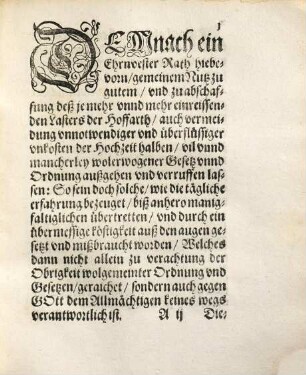 1
DEMnach ein
Ehrvester Rath hiebe-
vorn/gemeinem Nutz zu
gutem/ und zu abschaf-
fung deß je mehr vnnd mehr einreissen-
den Lasters der Hoffarth/ auch vermei-
dung vnnotwendiger vnd überflüssiger
vnkosten der Hochzeit halben/ vil vnnd
mancherley wolerwogener Gesetz vnnd
Ordnung außgehen vnd verruffen las-
sen: So sein doch solche/ wie die tägliche
erfahrung bezeuget/ biß anhero manig-
faltiglichen übertretten/ vnd durch ein
übermessige köstigkeit auß den augen ge-
setzt vnd mißbraucht worden/ Welches
dann nicht allein zu verachtung der
Obrigkeit wolgemeinter Ordnung vnd
Gesetzen/ geraichet/ sondern auch gegen
GOtt dem Allmächtigen keines wegs
verantwortlich ist. A ij Die-